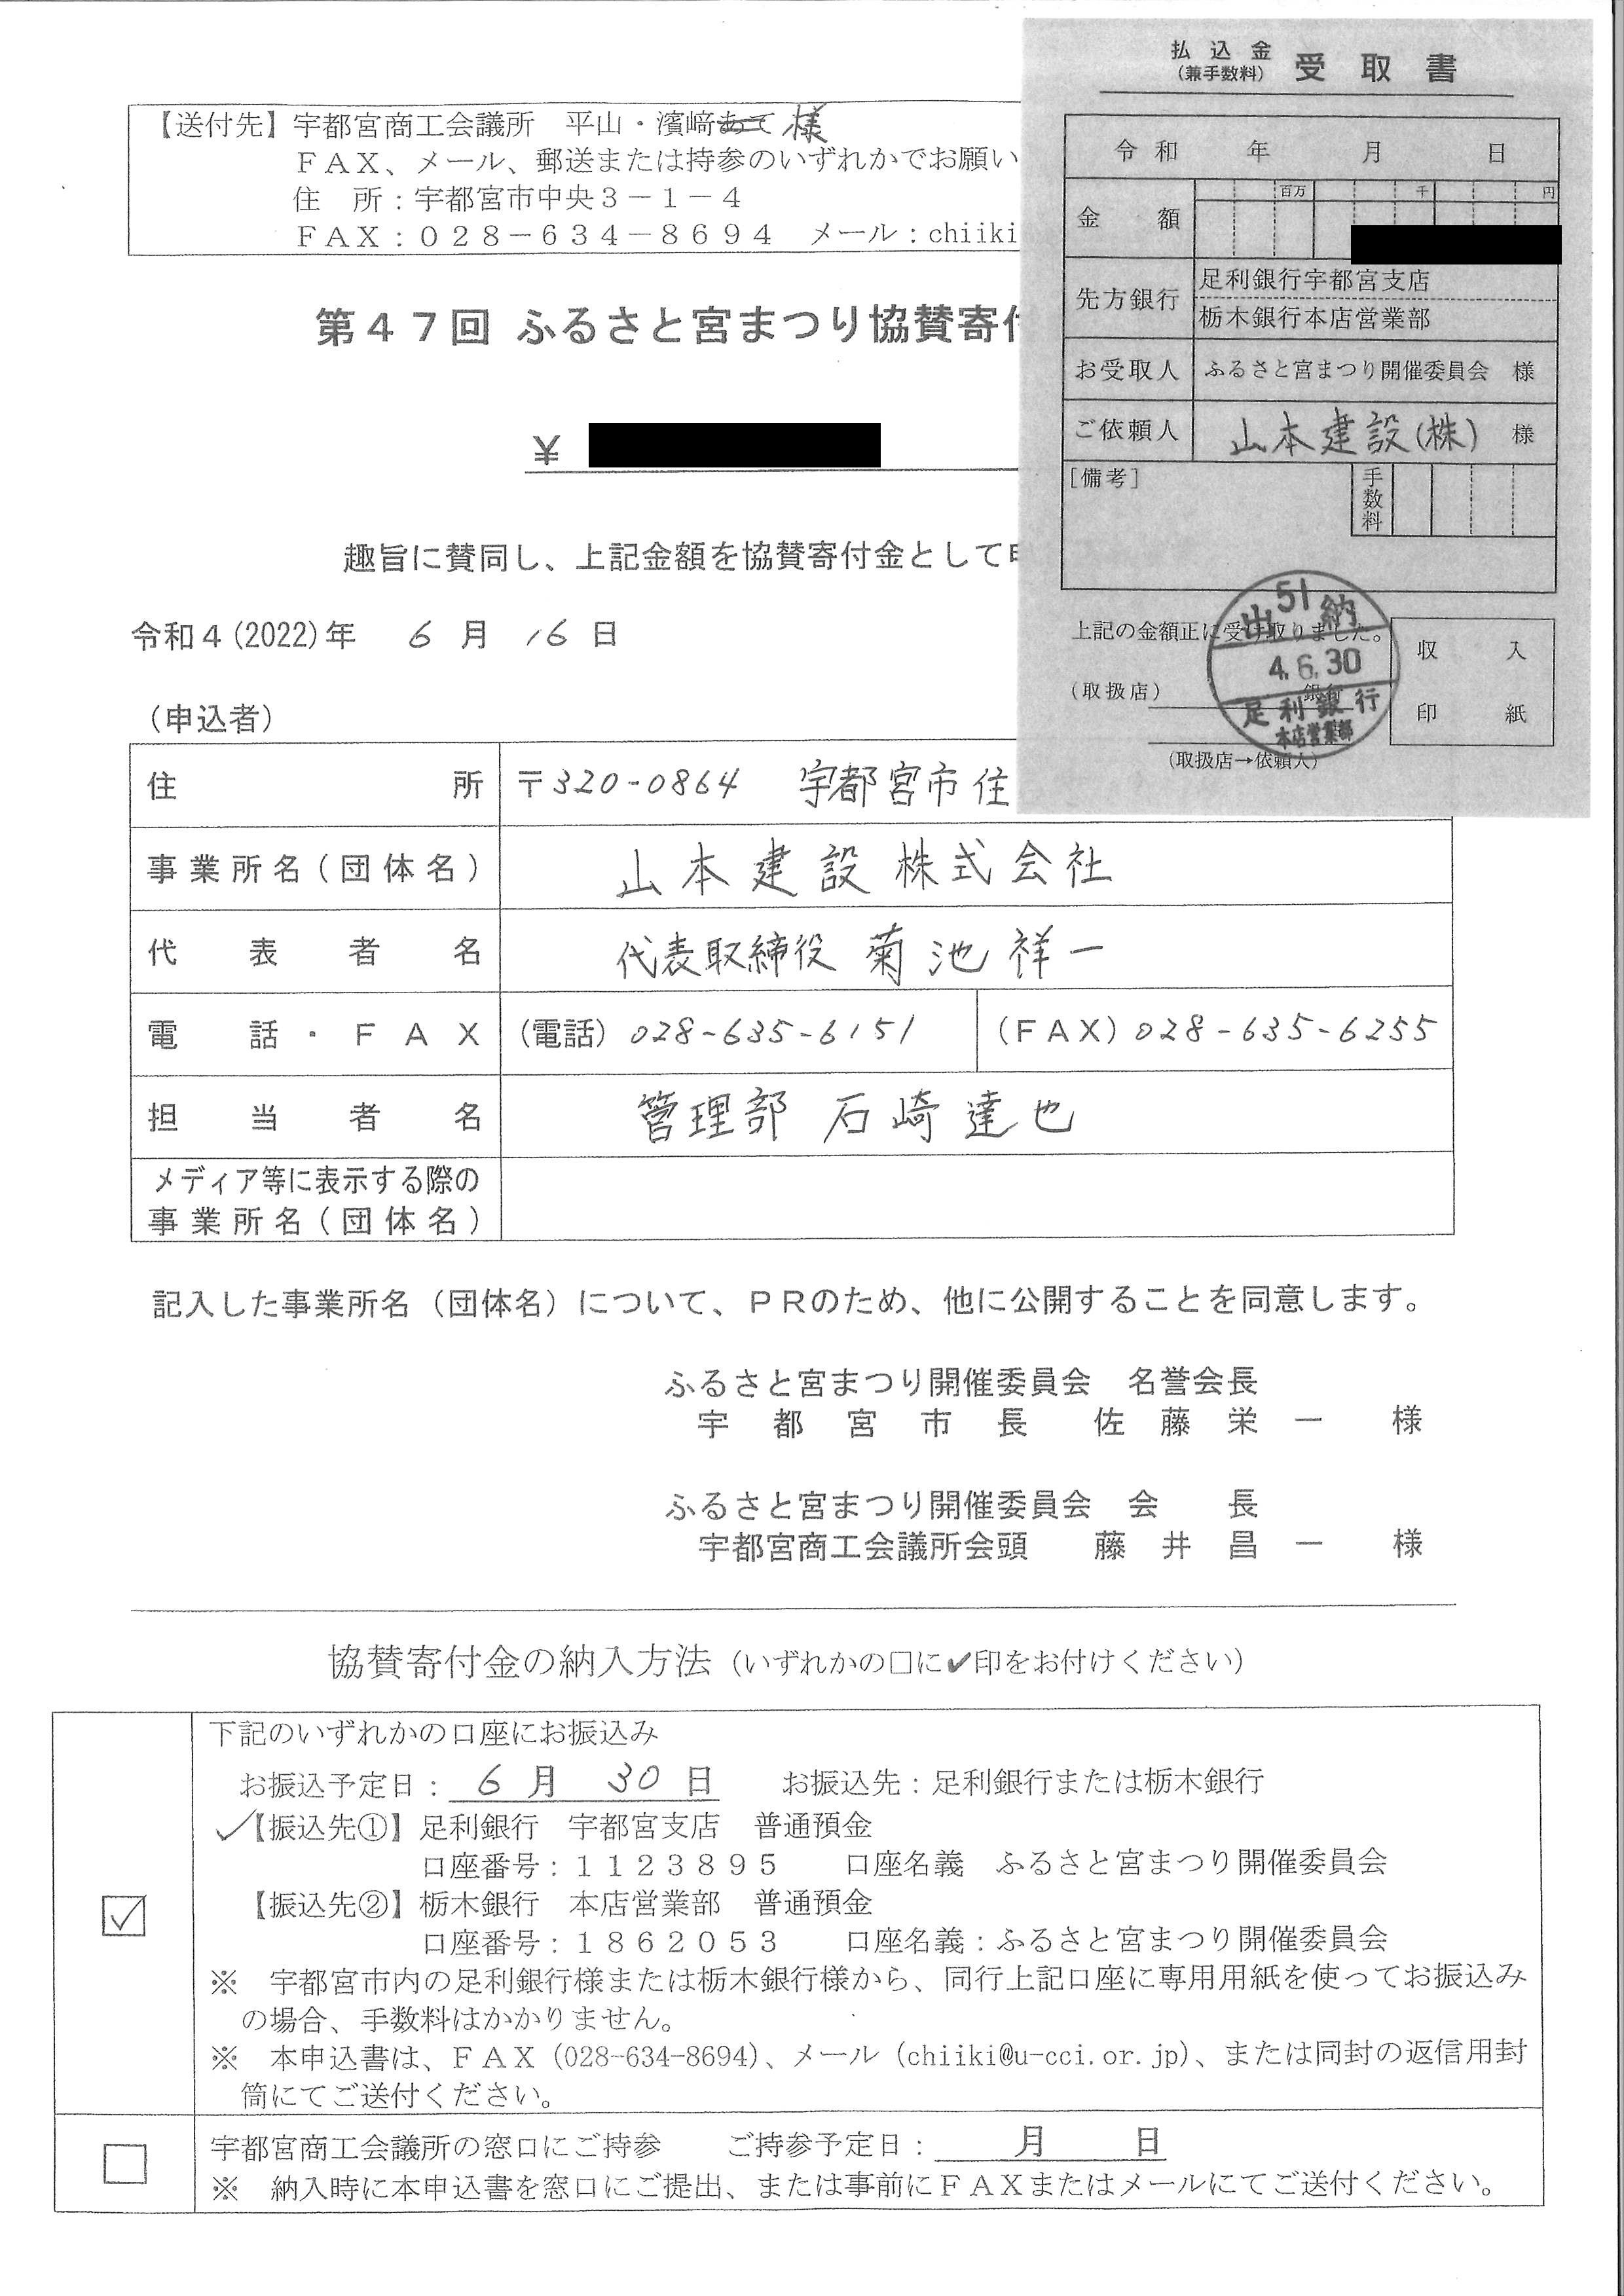 【送付先】宇都宮商工会議所　平山・濱﨑あて 様
ＦＡＸ、メール、郵送または持参のいずれかでお願い
住　所：宇都宮市中央３－１－４
ＦＡＸ：０２８－６３４－８６９４　メール：chiiki
第４７回 ふるさと宮まつり協賛寄付
￥
趣旨に賛同し、上記金額を協賛寄付金として申
令和４(2022)年　6 月　16 日
（申込者）
住所　〒320-0864　宇都宮市住
事業所名（団体名）　山本建設株式会社
代表者名　代表取締役 菊池祥一
電話・ＦＡＸ　（電話）028-635-6151　（ＦＡＸ）028-635-6255
担当者名　管理部 石崎達也
メディア等に表示する際の
事業所名（団体名）
払込金
（兼手数料）受取書
令和　年　月　日
金額　百万　千　円
先方銀行　足利銀行宇都宮支店
栃木銀行本店営業部
お受取人　ふるさと宮まつり開催委員会　様
ご依頼人　山本建設(株)　様
［備考］　手数料
上記の金額正に受け取りました。
（取扱店）　銀行
（取扱店→依頼人）
収入
印紙
51
出納
4.6.30
足利銀行
本店営業部
記入した事業所名（団体名）について、ＰＲのため、他に公開することを同意します。
ふるさと宮まつり開催委員会　名誉会長
宇都宮市長　佐藤栄一　様
ふるさと宮まつり開催委員会　会　長
宇都宮商工会議所会頭　藤井昌一　様
協賛寄付金の納入方法（いずれかの□に✔印をお付けください）
☑ 下記のいずれかの口座にお振込み
お振込予定日：6 月 30 日　お振込先：足利銀行または栃木銀行
✓【振込先①】足利銀行　宇都宮支店　普通預金
口座番号：１１２３８９５　口座名義　ふるさと宮まつり開催委員会
【振込先②】栃木銀行　本店営業部　普通預金
口座番号：１８６２０５３　口座名義：ふるさと宮まつり開催委員会
※　宇都宮市内の足利銀行様または栃木銀行様から、同行上記口座に専用用紙を使ってお振込み
の場合、手数料はかかりません。
※　本申込書は、ＦＡＸ（028-634-8694）、メール（chiiki@u-cci.or.jp）、または同封の返信用封
筒にてご送付ください。
□ 宇都宮商工会議所の窓口にご持参　ご持参予定日：　月　日
※　納入時に本申込書を窓口にご提出、または事前にＦＡＸまたはメールにてご送付ください。